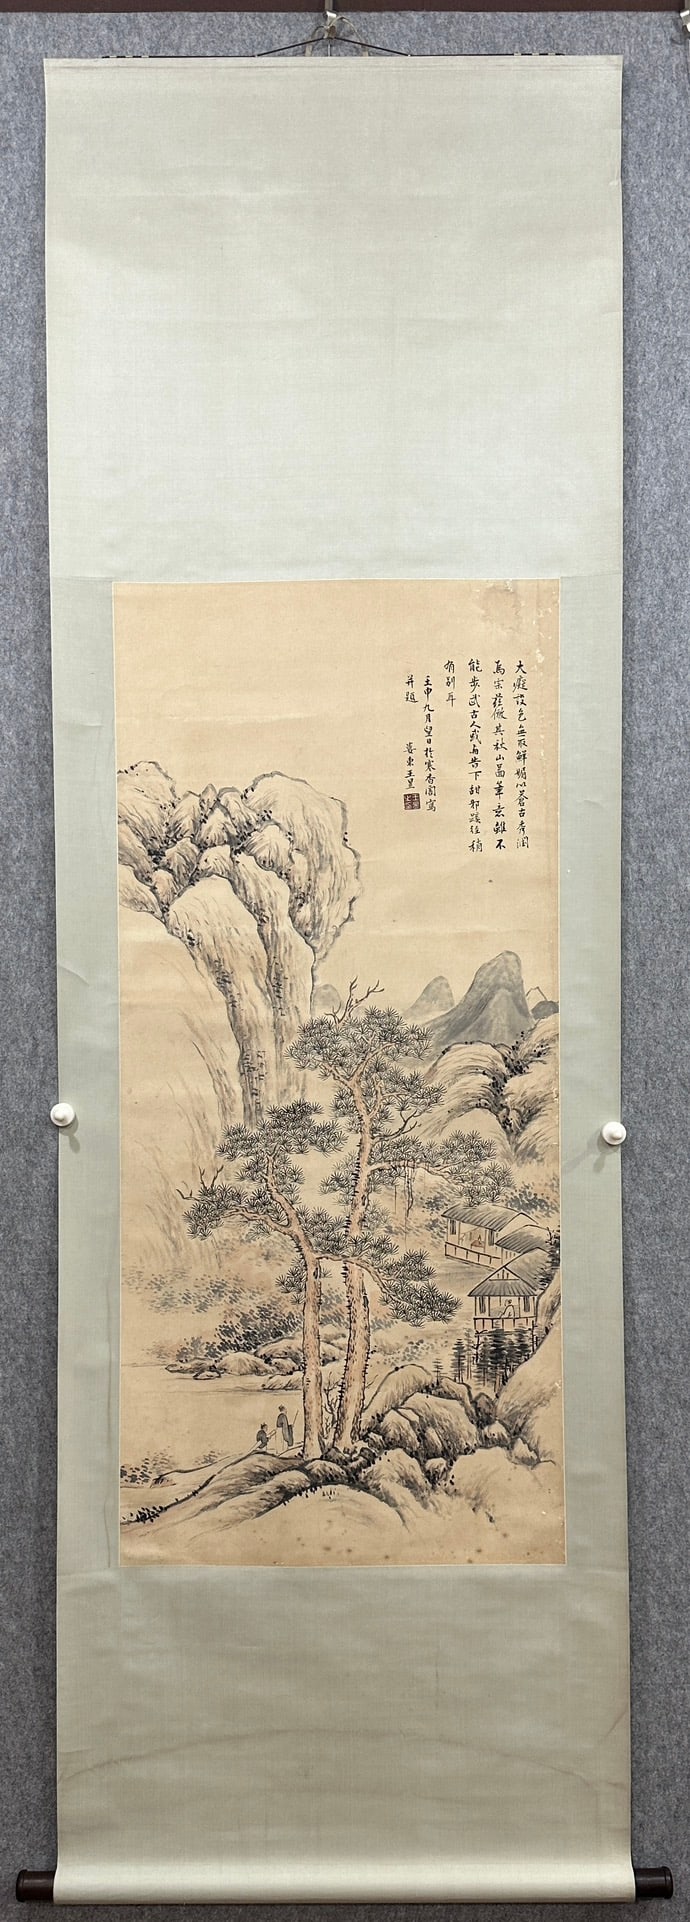 大癡設色無取鮮媚以蒼古秀潤
為宗茲倣其秋山啚筆意雖不
能步武古人或与昔下甜邪蹊徑稍
有別耳
壬申九月望日於寒香閣寫
并題
婁東王昱